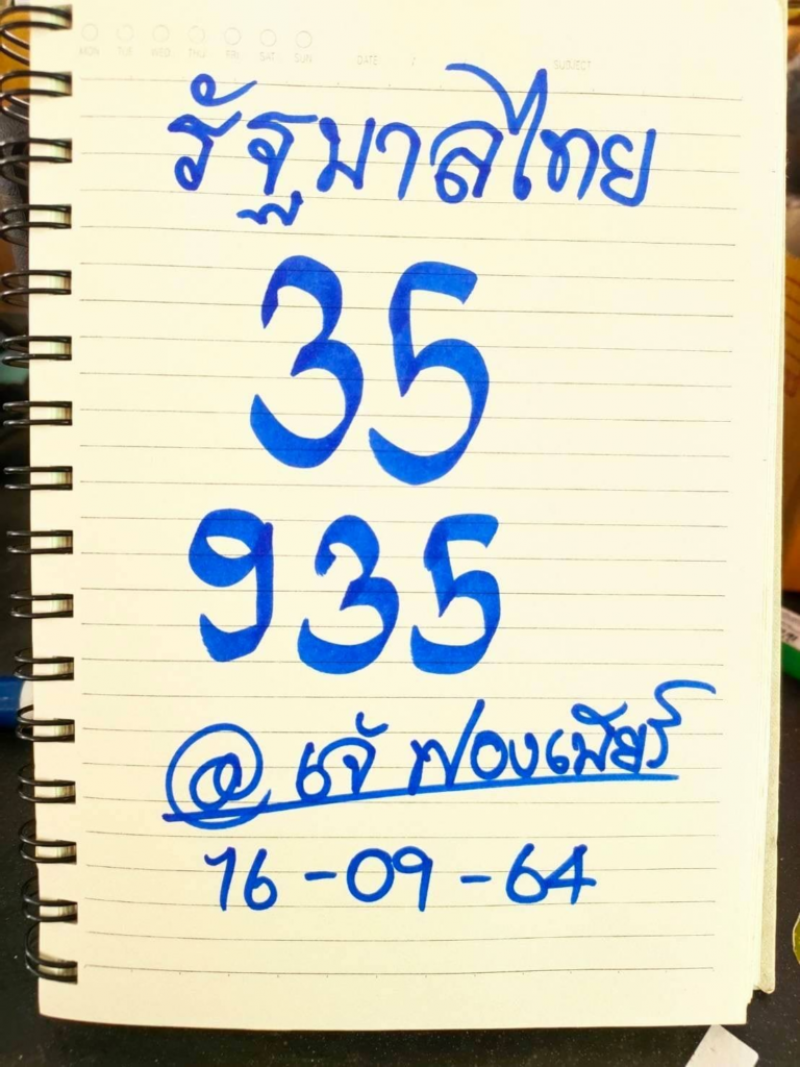 MON TUE WED THU FRI SAT SUN DATE / SUBJECT
รัฐบาลไทย
35
935
@ แจ้ ฟองเบียร์
16-09-64